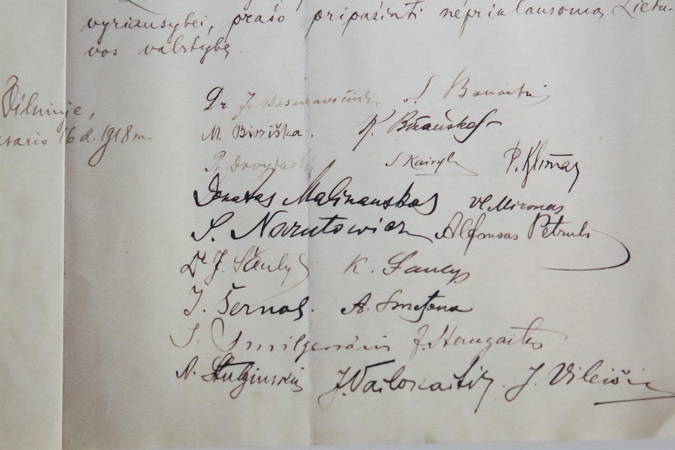 vyriausybei, prašo pripažinti nepriklausomą Lietu-
vos valstybę.
Vilniuje,
vasario 16 d. 1918 m.
Dr J. Basanavičius S. Banaitis
M. Biržiška. K. Bizauskas
Pr. Dovydaitis S Kairys P. Klimas
Donatas Malinauskas Vl. Mironas
S. Narutowicz Alfonsas Petrulis
Dr J. Šaulys K. Šaulys
J. Šernas. A. Smetona
J. Smilgevičius J. Staugaitis
A. Stulginskis J. Vailokaitis J. Vileišis